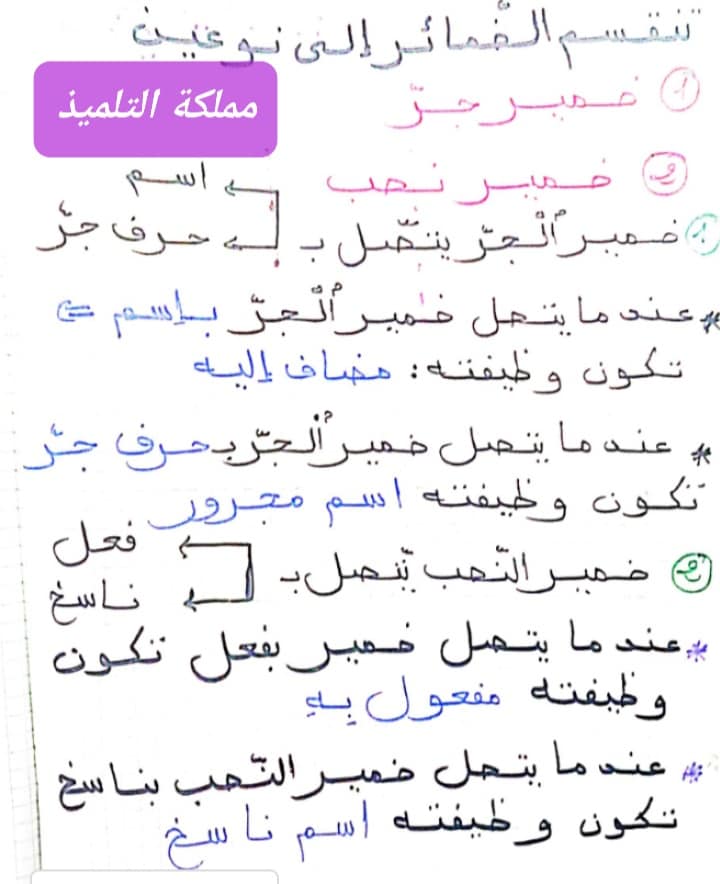 تنقسم الضّمائر إلى نوعين
مملكة التلميذ
① ضمير جرّ
② ضمير نصب
اسم
① ضمير الْجرّ يتّصل بـ
حرف جرّ
* عندما يتصل ضمير الْجرّ بإسم =>
تكون وظيفته: مضاف إليه
* عندما يتصل ضمير الْجرّ بحرف جرّ
تكون وظيفته اسم مجرور
فعل
② ضمير النّصب يتّصل بـ
ناسخ
* عندما يتصل ضمير بفعل تكون
وظيفته مفعول بِهِ
* عندما يتصل ضمير النّصب بناسخ
تكون وظيفته اسم ناسخ